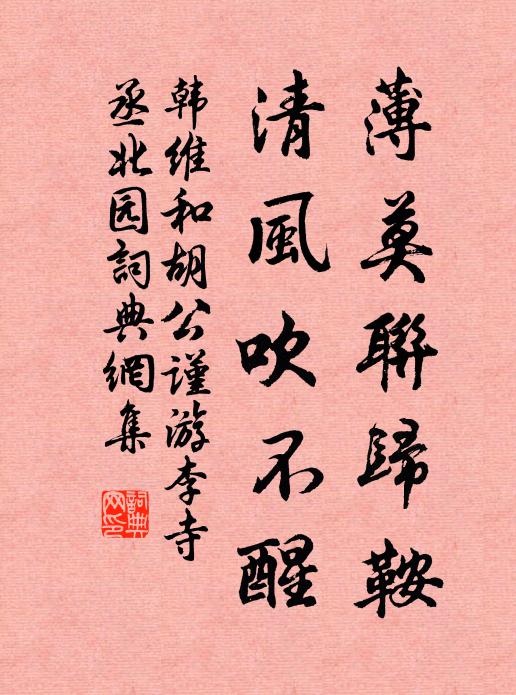 薄莫聯歸鞍
清風吹不醒
韩維和胡公謹游李寺
丞北园詞典網集
詞典
网印